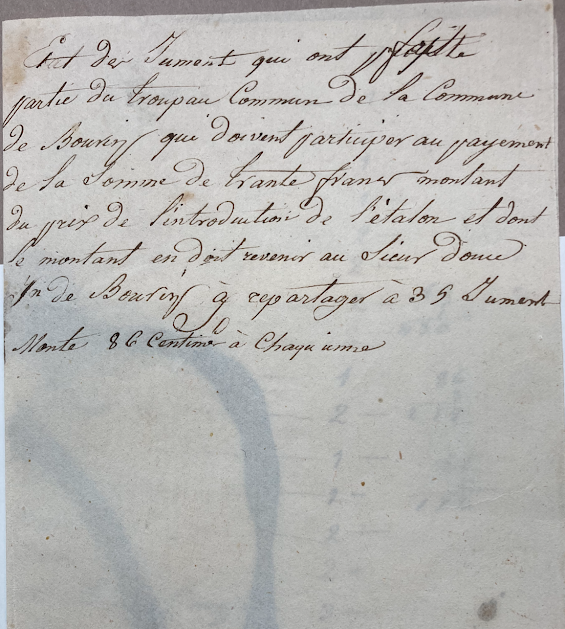 Etat des Jument qui ont faitte
partie du troupau Commun de la Commune
de Bourin qui doivent participer au payement
de la Somme de trante franc montant
du prix de l'introduction de l'étalon et dont
le montant en doit revenir au Sieur
de Bourin repartager à 35 Jument
Monte 86 Centime à Chaquunne